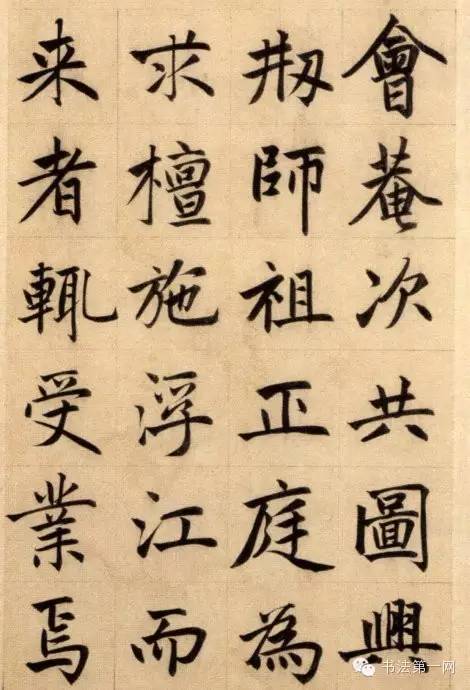 會菴次共圖興
刱師祖正庭為
求檀施浮江而
来者輒受業焉
书法第一网